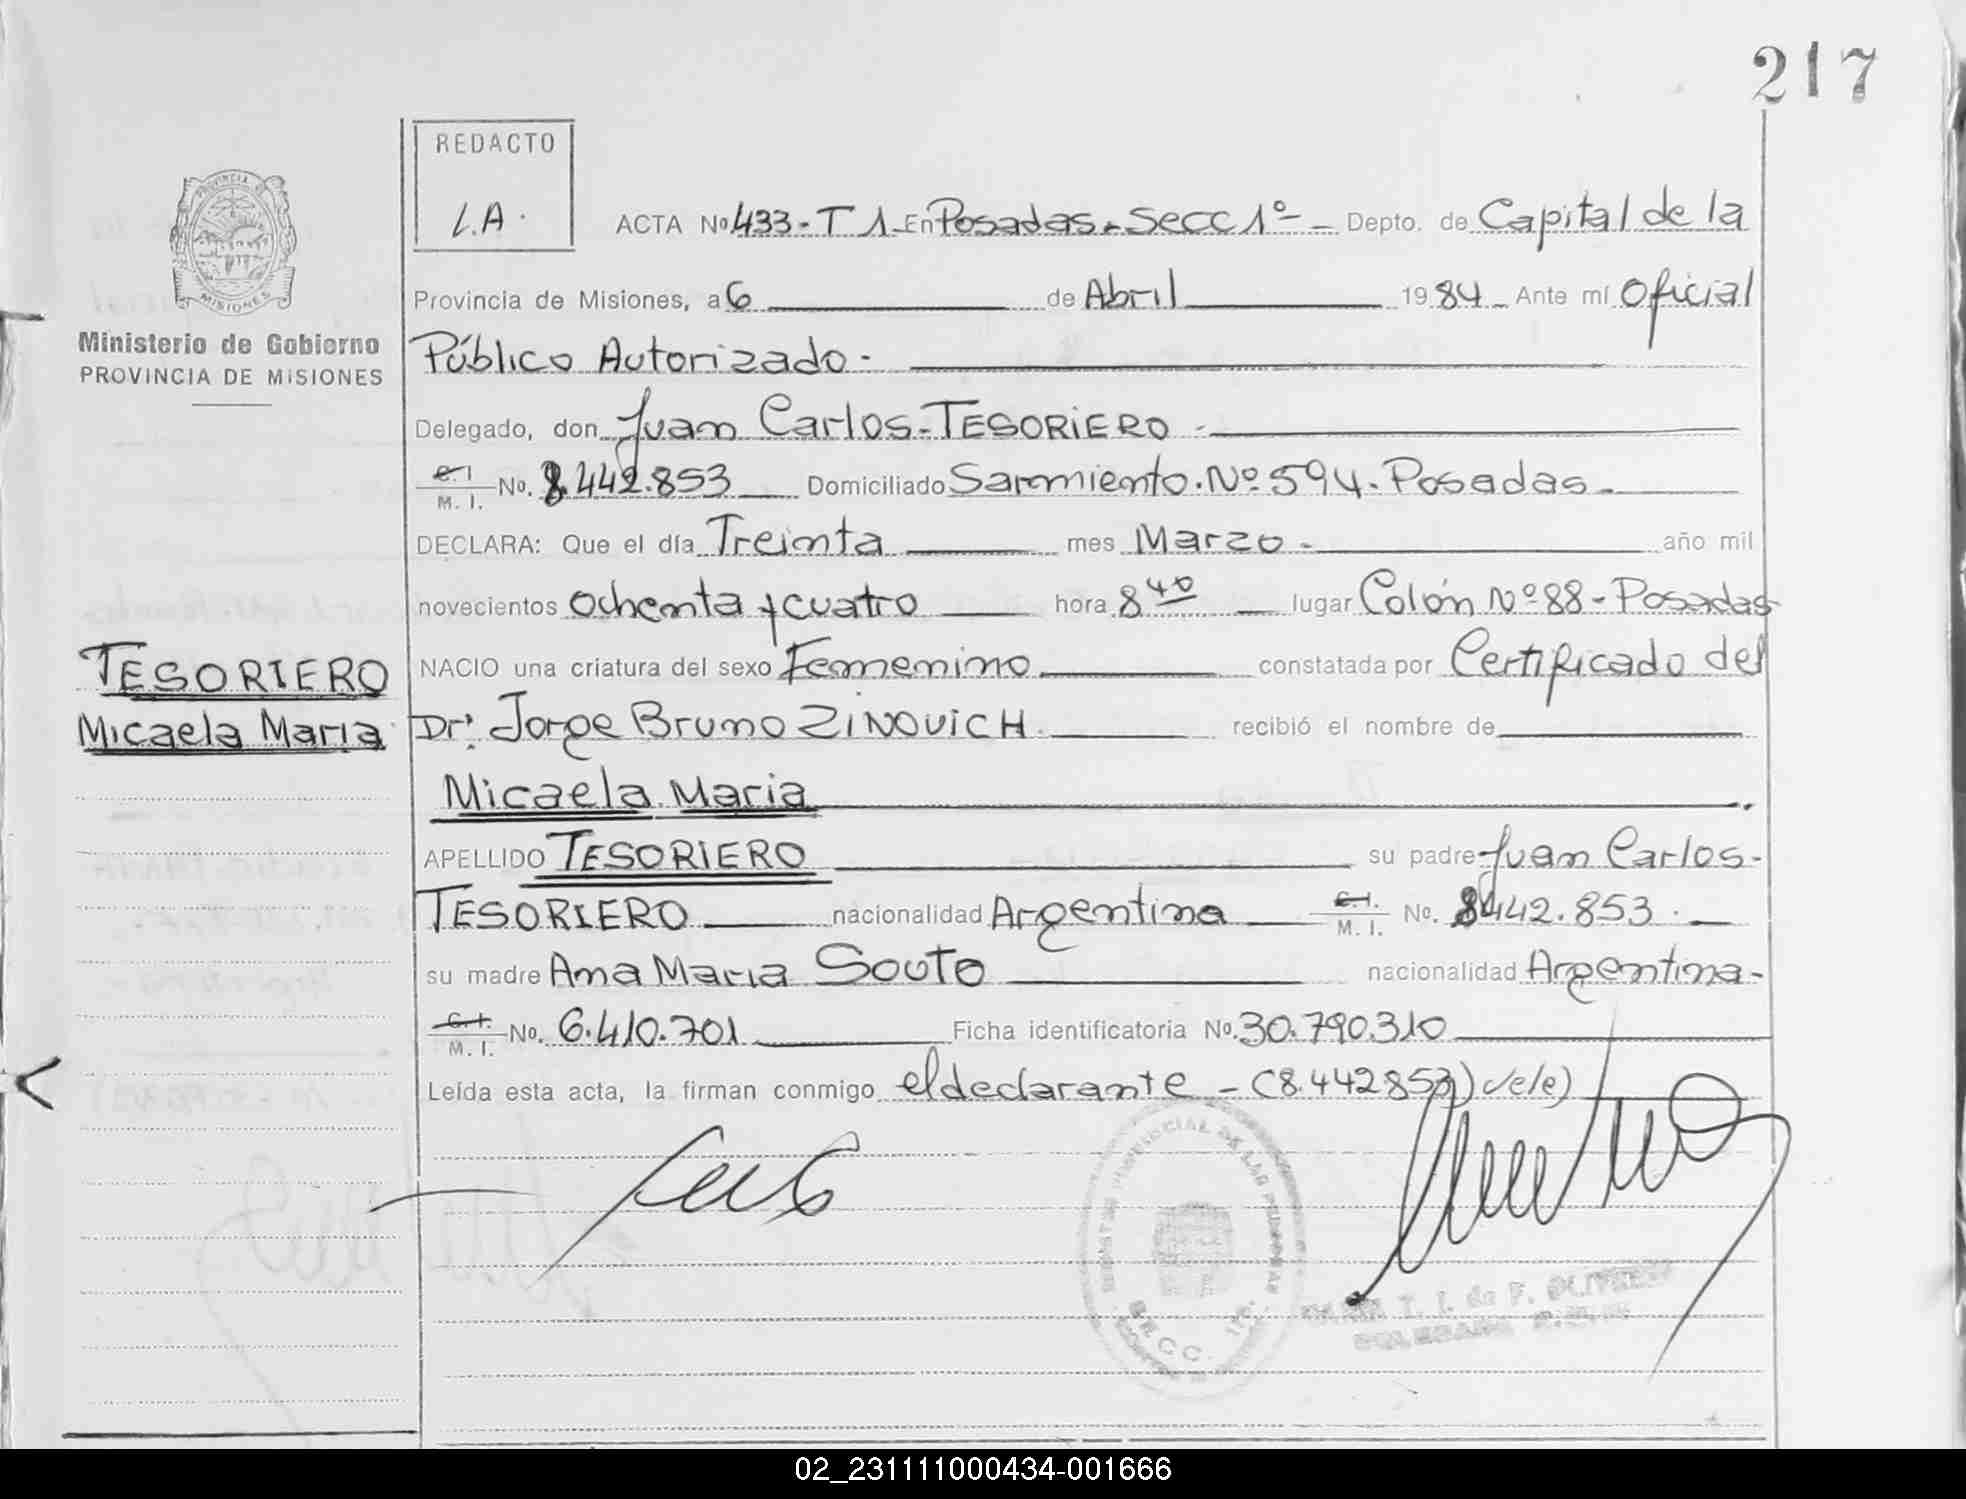 217
REDACTO
L.A.
PROVINCIA DE
MISIONES
Ministerio de Gobierno
PROVINCIA DE MISIONES
ACTA No 433-T 1-En Posadas-Secc 1º- Depto. de Capital de la
Provincia de Misiones, a 6 de Abril 1984 Ante mí Oficial
Público Autorizado-
Delegado, don Juan Carlos-TESORIERO-
C.I. M. I. No. 8.442.853 Domiciliado Sarmiento.Nº594-Posadas-
DECLARA: Que el día Treinta mes Marzo- año mil
novecientos ochenta y cuatro hora 8 40 lugar Colón Nº88-Posadas
TESORIERO
Micaela Maria
NACIO una criatura del sexo Femenino constatada por Certificado del
Dr. Jorge Bruno ZINOVICH recibió el nombre de
Micaela Maria
APELLIDO TESORIERO su padre Juan Carlos-
TESORIERO nacionalidad Argentina C.I. M. I. No. 8442.853.
su madre Ana Maria Souto nacionalidad Argentina-
C.I. M. I. No. 6.410.701 Ficha identificatoria No. 30.790.310
Leída esta acta, la firman conmigo el declarante-(8.442853)vele)
PROVINCIAL DE LAS PERSONAS
T. I. de F. OLIVEIRA
02_231111000434-001666